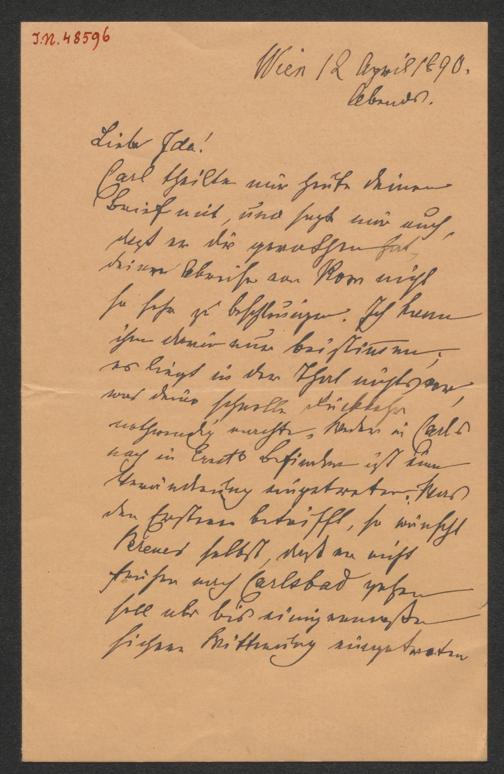 J.N. 48596
Wien 12 April 1890.
Abends.
Liebe Ida!
Carl theilte mir heute deinen
Brief mit, und sagt mir auch,
daß er dir gerathen hat,
deine Abreise von Rom nicht
so sehr zu beschleunigen. Ich kann
ihm darin nur beistimmen;
es liegt in der That nichts vor,
was deine schnelle Rückkehr
nothwendig machte. Weder in Carls
noch in Ernsts Befinden ist eine
Veränderung eingetreten. Was
den Ersteren betrifft, so wünscht
selbst, daß er nicht
früher nach Carlsbad gehen
soll als bis einigermaßen
sichere Witterung eingetreten